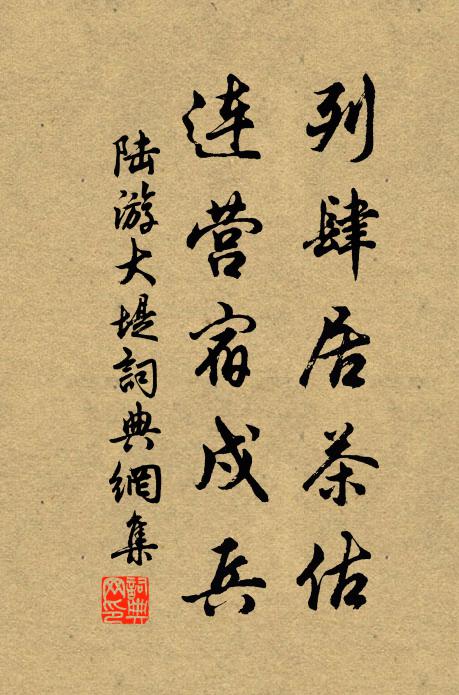 列肆居茶估
连营宿戍兵
陆游大堤詞典網集
詞典网印